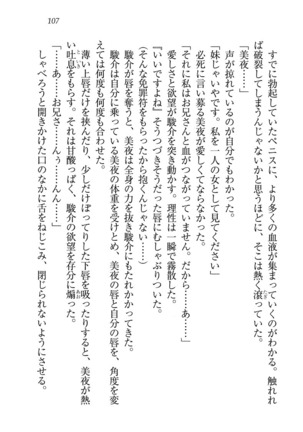 107
すでに勃起していたペニスに、より多くの血液が集まっていくのがわかる。触れれ
ば破裂してしまうんじゃないかと思うほどに、そこは熱く滾っていた。
「美夜……」
声が掠れているのが自分でもわかった。
「妹じゃいやです。私を一人の女として見てください」
必死に言い募る美夜が愛しくてならなかった。
「それに私はお兄さんと血がつながっていません。だから……あ……」
愛しさと欲望が駿介を突き動かす。理性は一瞬で霧散した。
『いいですよね』そうつづきそうだった唇にむしゃぶりついた。
（そんな免罪符をもらったから抱くんじゃない……）
駿介が唇を奪うと、美夜は全身の力を抜き駿介にもたれかかってきた。
駿介は自分に乗っている美夜の体重を受けとめ、美夜の唇と自分の唇を、角度を変
えて何度も何度も合わせた。
「……あ……お兄さん……んぅ……んん……」
薄い上唇だけを挟んだり、少しだけぽってりした下唇を吸ったりすると、美夜が熱
い吐息をもらす。それは甘酸っぱく、駿介の欲望を存分に煽った。
しゃべろうと開きかけた口のなかに舌をねじこみ、閉じられないようにする。